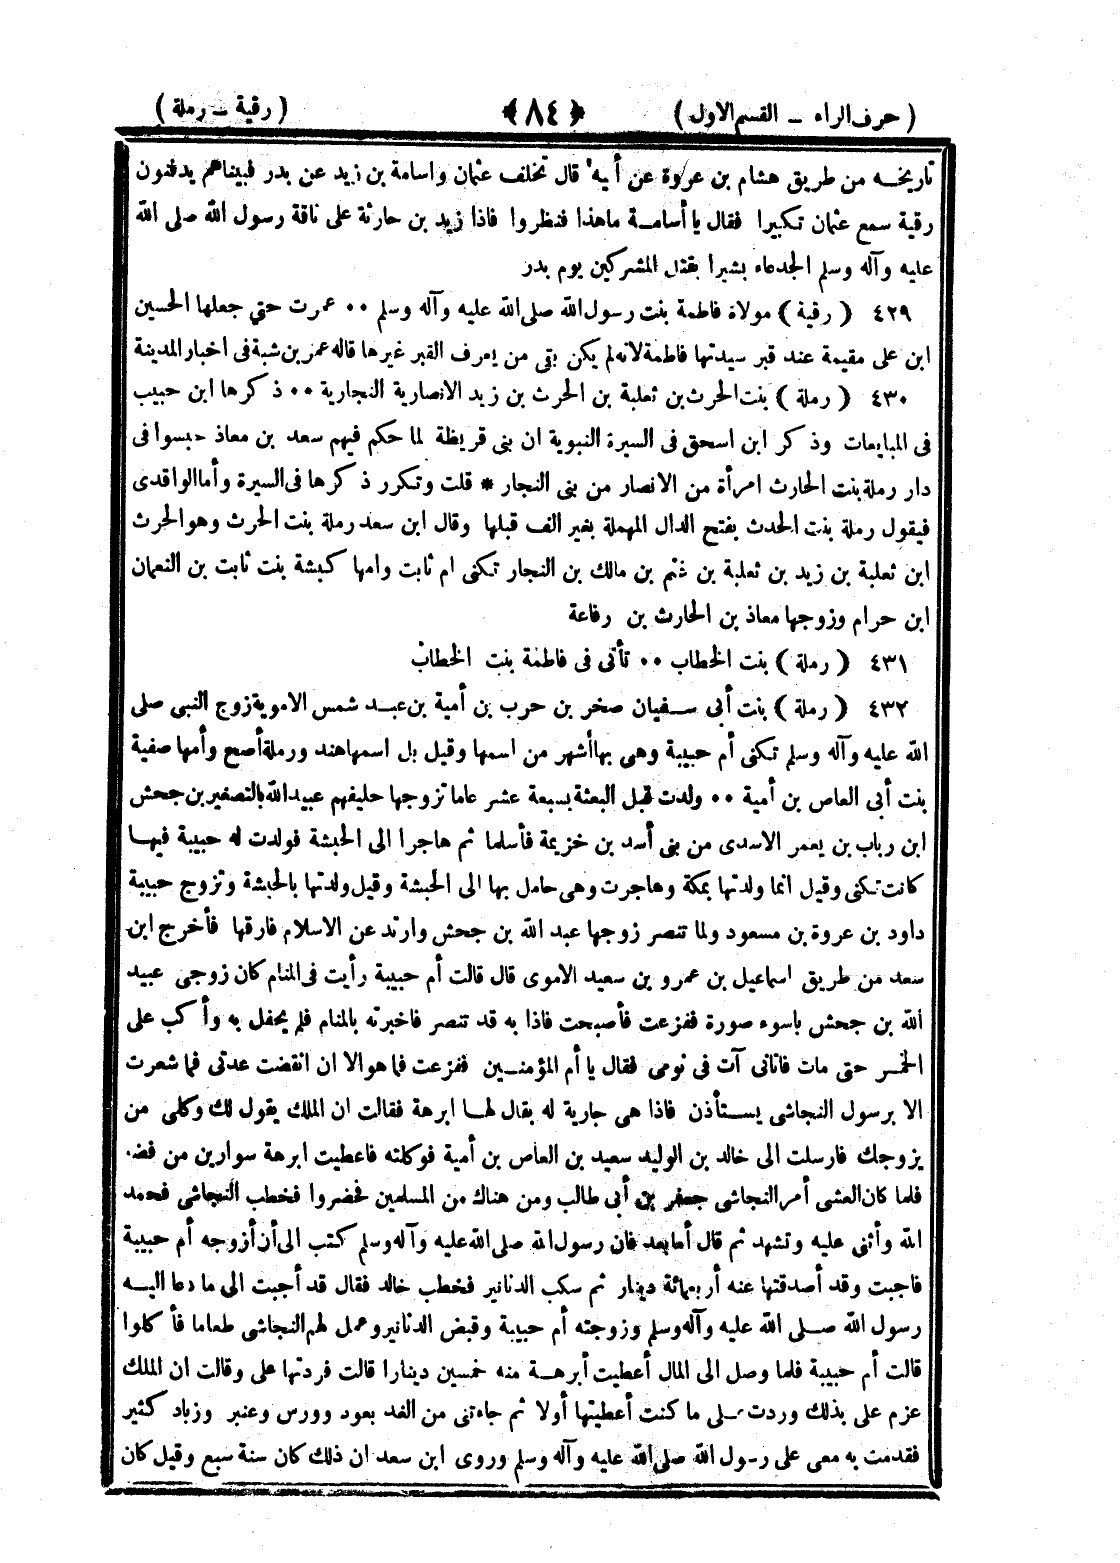 ( حرف الراء ــ القسم الاول ) ﴿ ٨٤ ﴾ ( رقية ــ رملة )
تاريخـه من طريق هشام بن عروة عن أبيه قال تخلف عثمان واسامة بن زيد عن بدر فبيناهم يدفنون
رقية سمع عثمان تكبيرا فقال يا أسامـة ماهذا فنظروا فاذا زيد بن حارثة على ناقة رسول الله صلى الله
عليه وآله وسلم الجدعاء بشيرا بقتل المشركين يوم بدر
٤٢٩ ( رقية ) مولاة فاطمة بنت رسول الله صلى الله عليه وآله وسلم ٠٠ عمرت حتي جعلها الحسين
ابن على مقيمة عند قبر سيدتها فاطمة لانه لم يكن بقى من يعرف القبر غيرها قاله عمر بن شبة فى اخبار المدينة
٤٣٠ ( رملة ) بنت الحرث بن ثعلبة بن الحرث بن زيد الانصارية النجارية ٠٠ ذكرها ابن حبيب
فى المبايعات وذكر ابن اسحق فى السيرة النبوية ان بنى قريظة لما حكم فيهم سعد بن معاذ حبسوا فى
دار رملة بنت الحارث امرأة من الانصار من بنى النجار * قلت وتكرر ذكرها فى السيرة وأما الواقدى
فيقول رملة بنت الحدث بفتح الدال المهملة بغير الف قبلها وقال ابن سعد رملة بنت الحرث وهو الحرث
ابن ثعلبة بن زيد بن ثعلبة بن غنم بن مالك بن النجار تكنى ام ثابت وامها كبشة بنت ثابت بن النعمان
ابن حرام وزوجها معاذ بن الحارث بن رفاعة
٤٣١ ( رملة ) بنت الخطاب ٠٠ تأتى فى فاطمة بنت الخطاب
٤٣٢ ( رملة ) بنت أبى سـفيان صخر بن حرب بن أمية بن عبـد شمس الاموية زوج النبى صلى
الله عليه وآله وسلم تكنى أم حبيبة وهى بها أشهر من اسمها وقيل بل اسمها هند ورملة أصح وأمها صفية
بنت أبى العاص بن أمية ٠٠ ولدت قبل البعثة بسبعة عشر عاما تزوجها حليفهم عبيد الله بالتصغير بن جحش
ابن رباب بن يعمر الاسدى من بنى أسد بن خزيمة فأسلما ثم هاجرا الى الحبشة فولدت له حبيبة فبهـا
كانت تكنى وقيل انما ولدتها بمكة وهاجرت وهى حامل بها الى الحبشة وقيل ولدتها بالحبشة وتزوج حبيبة
داود بن عروة بن مسعود ولما تنصر زوجها عبد الله بن جحش وارتد عن الاسلام فارقها فأخرج ابن
سعد من طريق اسماعيل بن عمرو بن سعيد الاموى قال قالت أم حبيبة رأيت فى المنام كان زوجى عبيد
الله بن جحش باسوء صورة ففزعت فأصبحت فاذا به قد تنصر فاخبرته بالمنام فلم يحفل به وأكب على
الخمـر حتى مات فاتانى آت فى نومى فقال يا أم المؤمنـين ففزعت فما هو الا ان انقضت عدتى فما شعرت
الا برسول النجاشى يسـتأذن فاذا هى جارية له يقال لهـا ابرهة فقالت ان الملك يقول لك وكلى من
يزوجك فارسلت الى خالد بن الوليد سعيد بن العاص بن أمية فوكلته فاعطيت ابرهة سوارين من فضة
فلما كان العشى أمر النجاشى جعفر بن أبى طالب ومن هناك من المسلمين فحضروا فخطب النجاشى فحمد
الله وأثنى عليه وتشهد ثم قال أما بعد فان رسول الله صلى الله عليه وآله وسلم كتب الى أن أزوجه أم حبيبة
فاجبت وقد أصدقتها عنه أربعمائة دينار ثم سكب الدنانير فخطب خالد فقال قد أجبت الى ما دعا اليـه
رسول الله صـلى الله عليه وآله وسلم وزوجته أم حبيبة وقبض الدنانير وعمل لهم النجاشى طعاما فأكلوا
قالت أم حبيبة فلما وصل الى المال أعطيت أبرهـة منه خمسين دينارا قالت فردتها على وقالت ان الملك
عزم على بذلك وردت على ما كنت أعطيتها أولا ثم جاءتنى من الغد بعود وورس وعنبر وزباد كثير
فقدمت به معى على رسول الله صلى الله عليه وآله وسلم وروى ابن سعد ان ذلك كان سنة سبع وقيل كان